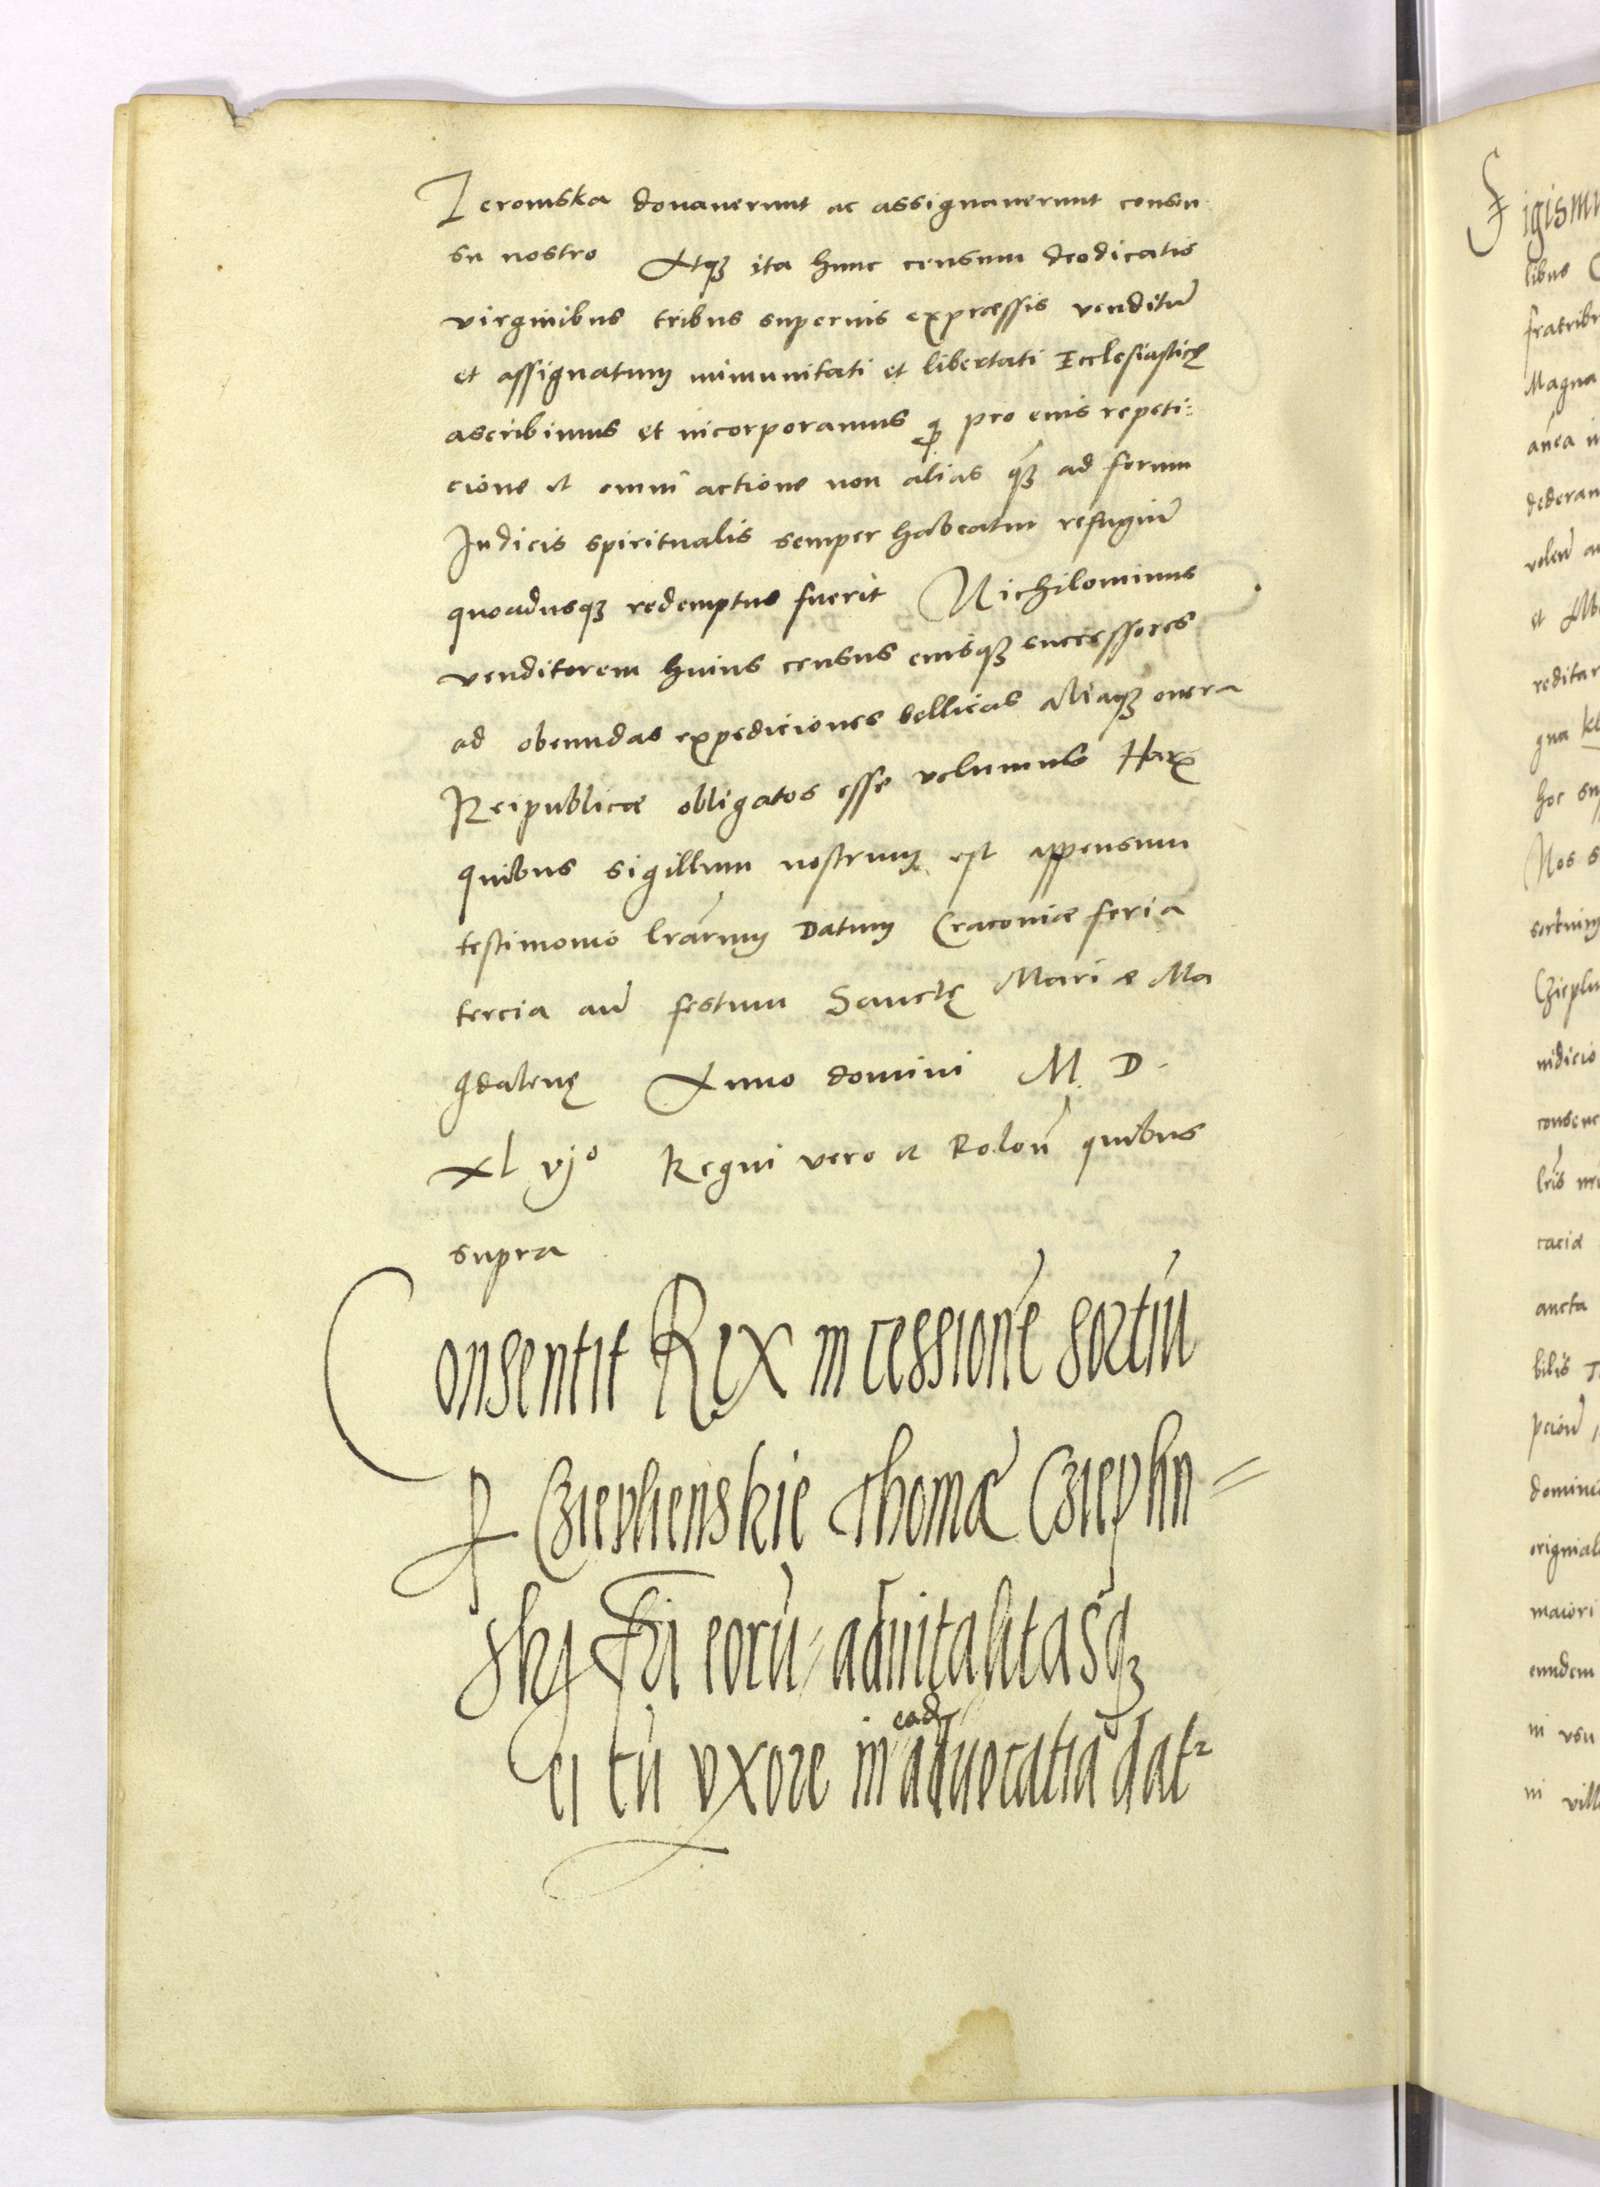 Ieromska donaverunt ac assignaverunt consen
su nostro Atqȝ ita hunc censum deodicatis
virginibus tribus superius expressis venditū
et assignatum immunitati et libertati Ecclesiasticę
ascribimus et incorporamus q̄ pro eius repeti:
cione et omni actione non alias qȝ ad forum
Iudicis spiritualis semper habeatur refugiū
quoadusqȝ redemptus fuerit Nichilominus
venditorem huius census eiusqȝ successores
ad obeundas expediciones bellicas aliaqȝ onera
Reipublicæ obligatos esse volumus Harꝝ
quibus sigillum nostrum est appensum
testimonio lrārum Datum Cracoviæ feria
tercia an̄ festum Sanctę Mariæ Ma
gdalenę Anno domini M. D.
xl vjº Regni vero et Colon̄ quibus
supra
Consentit Rex in cessionē sortiū
ꝑ Czieplienskie Thomæ Czieplin=
skj Fri eorū, advitalitasqȝ
ei cū vxore in ead advocatia dat²
Sigismu
libus
fratribu
Magna
dederan
et Alb
reditar
gna
hoc su
Nos s
Czieplin
iudicio
consenc
caciæ
aucta
bilis
originale
maiori
eundem
in vsu
in vill